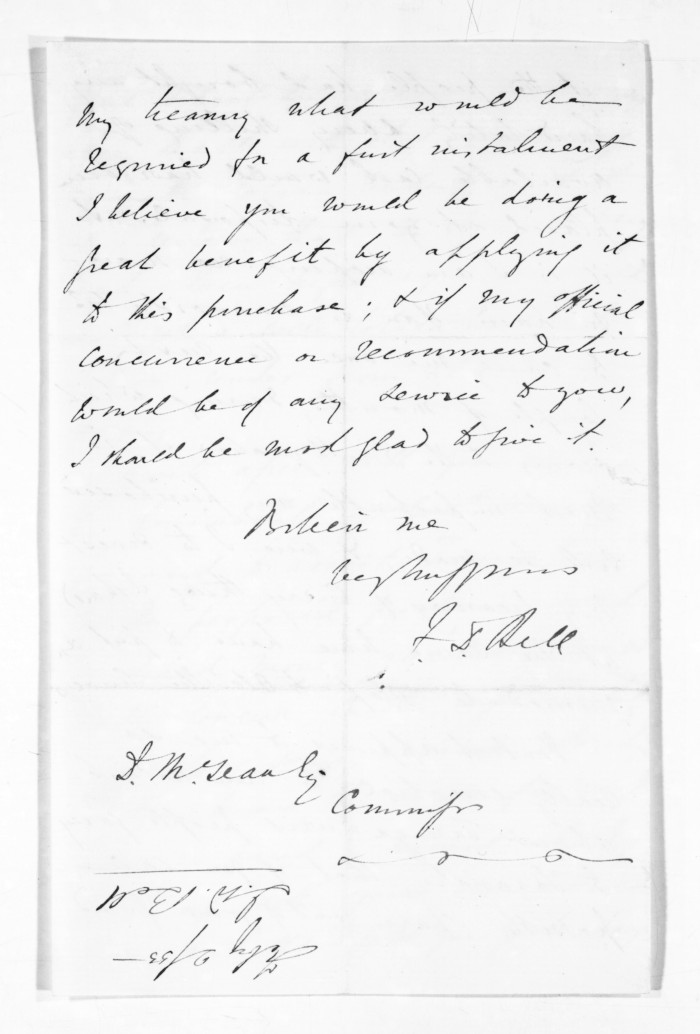 my treasury what would be
required for a first instalment
I believe you would be doing a
great benefit by applying it
to this purchase; & if my official
concurrence or recommendation
would be of any service to you,
I should be most glad to give it.
Believe me
F. D. Bell
D. McLean Esq
Commissr
F. D. Bell
/53